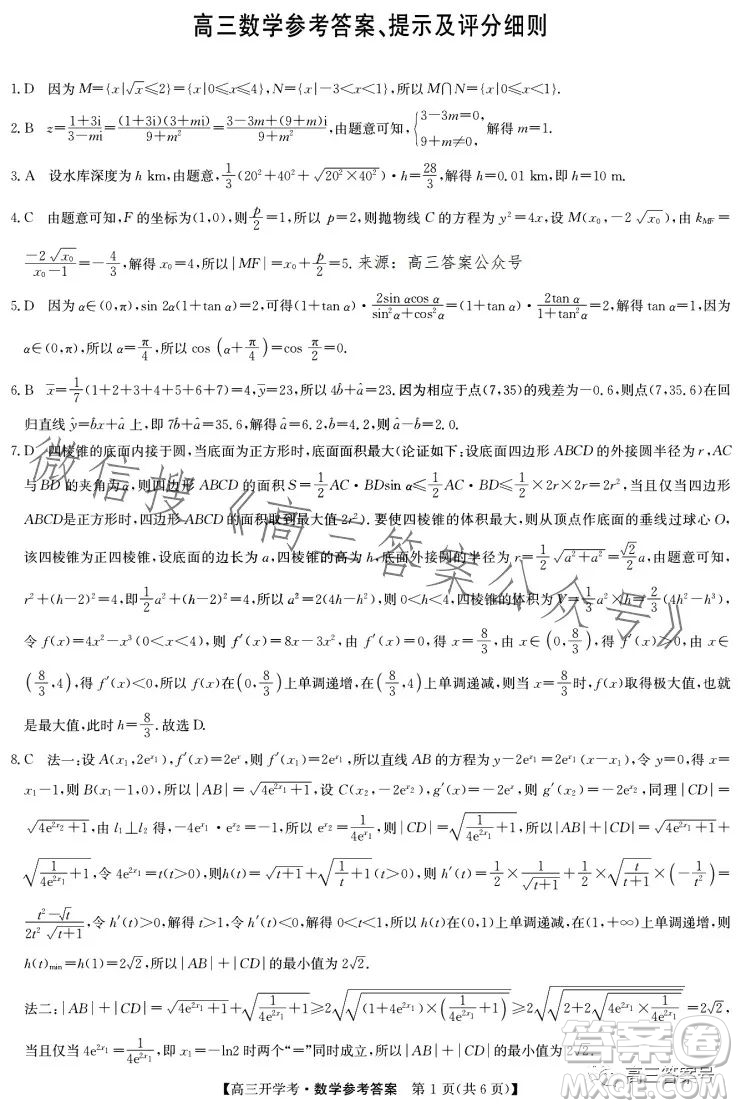 高三数学参考答案、提示及评分细则
1. D 因为 M={x|√x≤2}={x|0≤x≤4}，N={x|-3<x<1}，所以 M∩N={x|0≤x<1}.
2. B z=(1+3i)/(3-mi)=(1+3i)(3+mi)/(9+m²)=(3-3m+(9+m)i)/(9+m²)，由题意可知，{3-3m=0, 9+m≠0, 解得 m=1.
3. A 设水库深度为 h km，由题意，1/3(20²+40²+√(20²×40²))·h=28/3，解得 h=0.01 km，即 h=10 m.
4. C 由题意可知，F 的坐标为(1,0)，则 p/2=1，所以 p=2，则抛物线 C 的方程为 y²=4x，设 M(x₀,-2√x₀)，由 k_MF=
(-2√x₀)/(x₀-1)=-4/3，解得 x₀=4，所以|MF|=x₀+p/2=5. 来源：高三答案公众号
5. D 因为 α∈(0,π)，sin 2α(1+tan α)=2，可得(1+tan α)·(2sin αcos α)/(sin²α+cos²α)=(1+tan α)·(2tan α)/(1+tan²α)=2，解得 tan α=1，因为
α∈(0,π)，所以 α=π/4，所以 cos(α+π/4)=cos π/2=0.
6. B x̄=1/7(1+2+3+4+5+6+7)=4，ȳ=23，所以 4b̂+â=23. 因为相应于点(7,35)的残差为-0.6，则点(7,35.6)在回
归直线 ŷ=b̂x+â 上，即 7b̂+â=35.6，解得 â=6.2，b̂=4.2，则 â-b̂=2.0.
7. D 四棱锥的底面内接于圆，当底面为正方形时，底面面积最大(论证如下：设底面四边形 ABCD 的外接圆半径为 r，AC
与 BD 的夹角为 α，则四边形 ABCD 的面积 S=1/2 AC·BDsin α≤1/2 AC·BD≤1/2×2r×2r=2r²，当且仅当四边形
ABCD是正方形时，四边形 ABCD 的面积取到最大值 2r²). 要使四棱锥的体积最大，则从顶点作底面的垂线过球心 O，
该四棱锥为正四棱锥，设底面的边长为 a，四棱锥的高为 h，底面外接圆的半径为 r=1/2√(a²+a²)=√2/2 a，由题意可知，
r²+(h-2)²=4，即 1/2 a²+(h-2)²=4，所以 a²=2(4h-h²)，则 0<h<4，四棱锥的体积为 V=1/3 a²×h=2/3(4h²-h³)，
令 f(x)=4x²-x³(0<x<4)，f′(x)=8x-3x²，由 f′(x)=0，得 x=8/3，由 x∈(0,8/3)，得 f′(x)>0，由 x∈
(8/3,4)，得 f′(x)<0，所以 f(x)在(0,8/3)上单调递增，在(8/3,4)上单调递减，则当 x=8/3 时，f(x)取得极大值，也
是最大值，此时 h=8/3. 故选 D.
8. C 法一：设 A(x₁,2e^(x₁))，f′(x)=2e^x，则 f′(x₁)=2e^(x₁)，所以直线 AB 的方程为 y-2e^(x₁)=2e^(x₁)(x-x₁)，令 y=0，得 x=
x₁-1，则 B(x₁-1,0)，所以|AB|=√(4e^(2x₁)+1)，设 C(x₂,-2e^(x₂))，g′(x)=-2e^x，则 g′(x₂)=-2e^(x₂)，同理|CD|=
√(4e^(2x₂)+1)，由 l₁⊥l₂ 得，-4e^(x₁)·e^(x₂)=-1，所以 e^(x₂)=1/(4e^(x₁))，则|CD|=√(1/(4e^(2x₁))+1)，所以|AB|+|CD|=√(4e^(2x₁)+1)+
√(1/(4e^(2x₁))+1)，令 4e^(2x₁)=t(t>0)，则h(t)=√(t+1)+√(1/t+1)(t>0)，则 h′(t)=1/2×1/√(t+1)+1/2×√(t/(t+1))×(-1/t²)=
(t²-√t)/(2t²√(t+1))，令 h′(t)>0，解得 t>1，令 h′(t)<0，解得 0<t<1，所以 h(t)在(0,1)上单调递减，在(1,+∞)上单调递增，则
h(t)min=h(1)=2√2，所以|AB|+|CD|的最小值为 2√2.
法二：|AB|+|CD|=√(4e^(2x₁)+1)+√(1/(4e^(2x₁))+1)≥2√(√((1+4e^(2x₁))×(1/(4e^(2x₁))+1)))≥2√(√(2+2√(4e^(2x₁)×1/(4e^(2x₁)))))=2√2，
当且仅当 4e^(2x₁)=1/(4e^(2x₁))，即 x₁=-ln2时两个“=”同时成立，所以|AB|+|CD|的最小值为 2√2.
【高三开学考·数学参考答案 第 1 页(共 6 页)】
微信搜《高三答案公众号》
答案圈
高三答案号